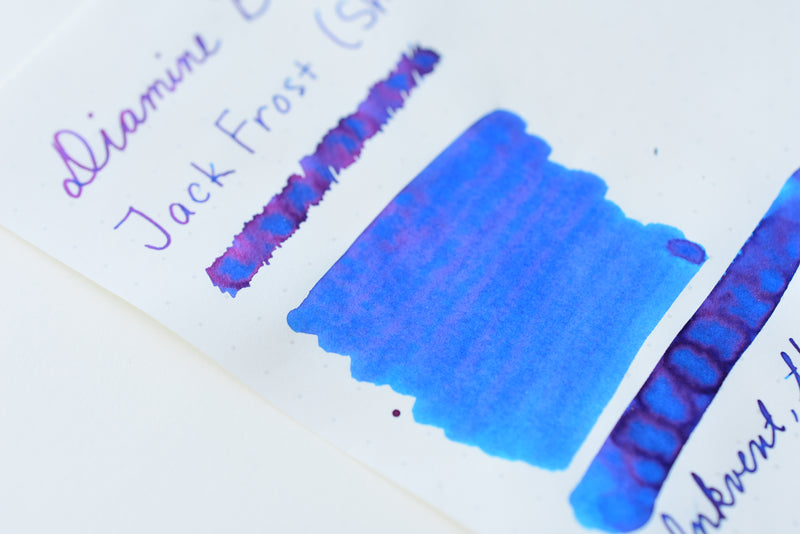 Diamine
Jack Frost (Sh
Inkvent,